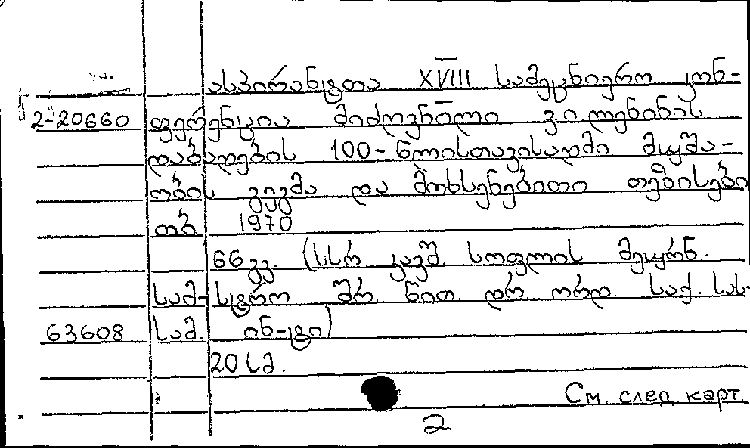 ასპირანტთა XVIII სამეცნიერო კონ-
2-20660 ფერენცია მიძღვნილი ვ.ი. ლენინის
დაბადების 100-წლისთავისადმი მუშა-
ობის გეგმა და მოხსენებითი თეზისები
თბ 1970
66 გვ. (სსრ კავშ. სოფლის მეურნ.
სამ-სტრო შრ. წით. დრ. ორდ. საქ. სას.
63608 სამ. ინ-ტი)
20 სმ.
См. след карт.
2